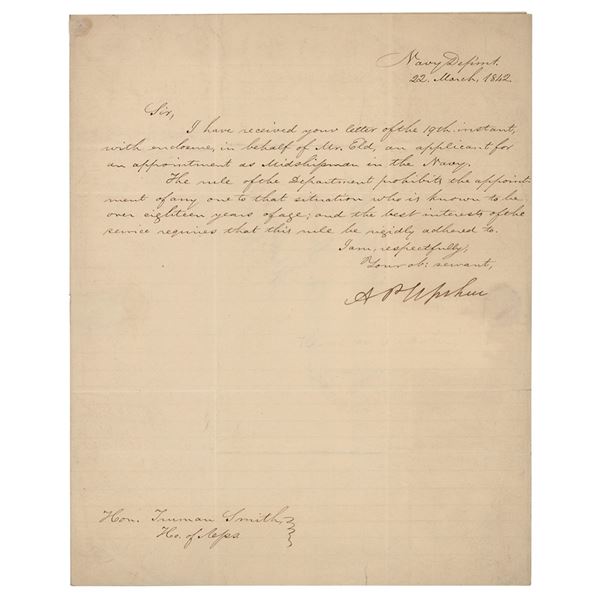 Navy Depmt.
22. March, 1842.
Sir,
I have received your letter of the 19th instant,
with enclosure, in behalf of Mr. Eld, an applicant for
an appointment as Midshipman in the Navy.
The rule of the Department prohibits the appoint-
ment of any one to that situation who is known to be
over eighteen years of age; and the best interests of the
service requires that this rule be rigidly adhered to.
I am, respectfully,
Your ob: servant,
A P Upshur
Hon. Truman Smith,
Ho. of Reps